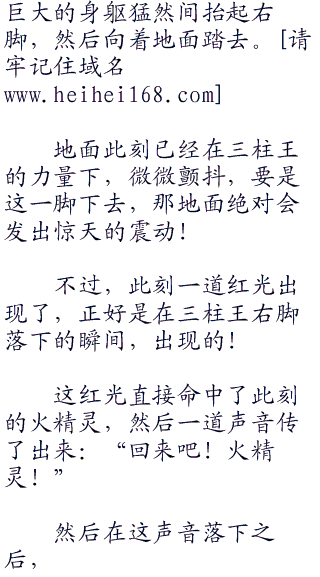 巨大的身躯猛然间抬起右
脚，然后向着地面踏去。[请
牢记住域名
www.heihei168.com]
地面此刻已经在三柱王
的力量下，微微颤抖，要是
这一脚下去，那地面绝对会
发出惊天的震动！
不过，此刻一道红光出
现了，正好是在三柱王右脚
落下的瞬间，出现的！
这红光直接命中了此刻
的火精灵，然后一道声音传
了出来：“回来吧！火精
灵！”
然后在这声音落下之
后，